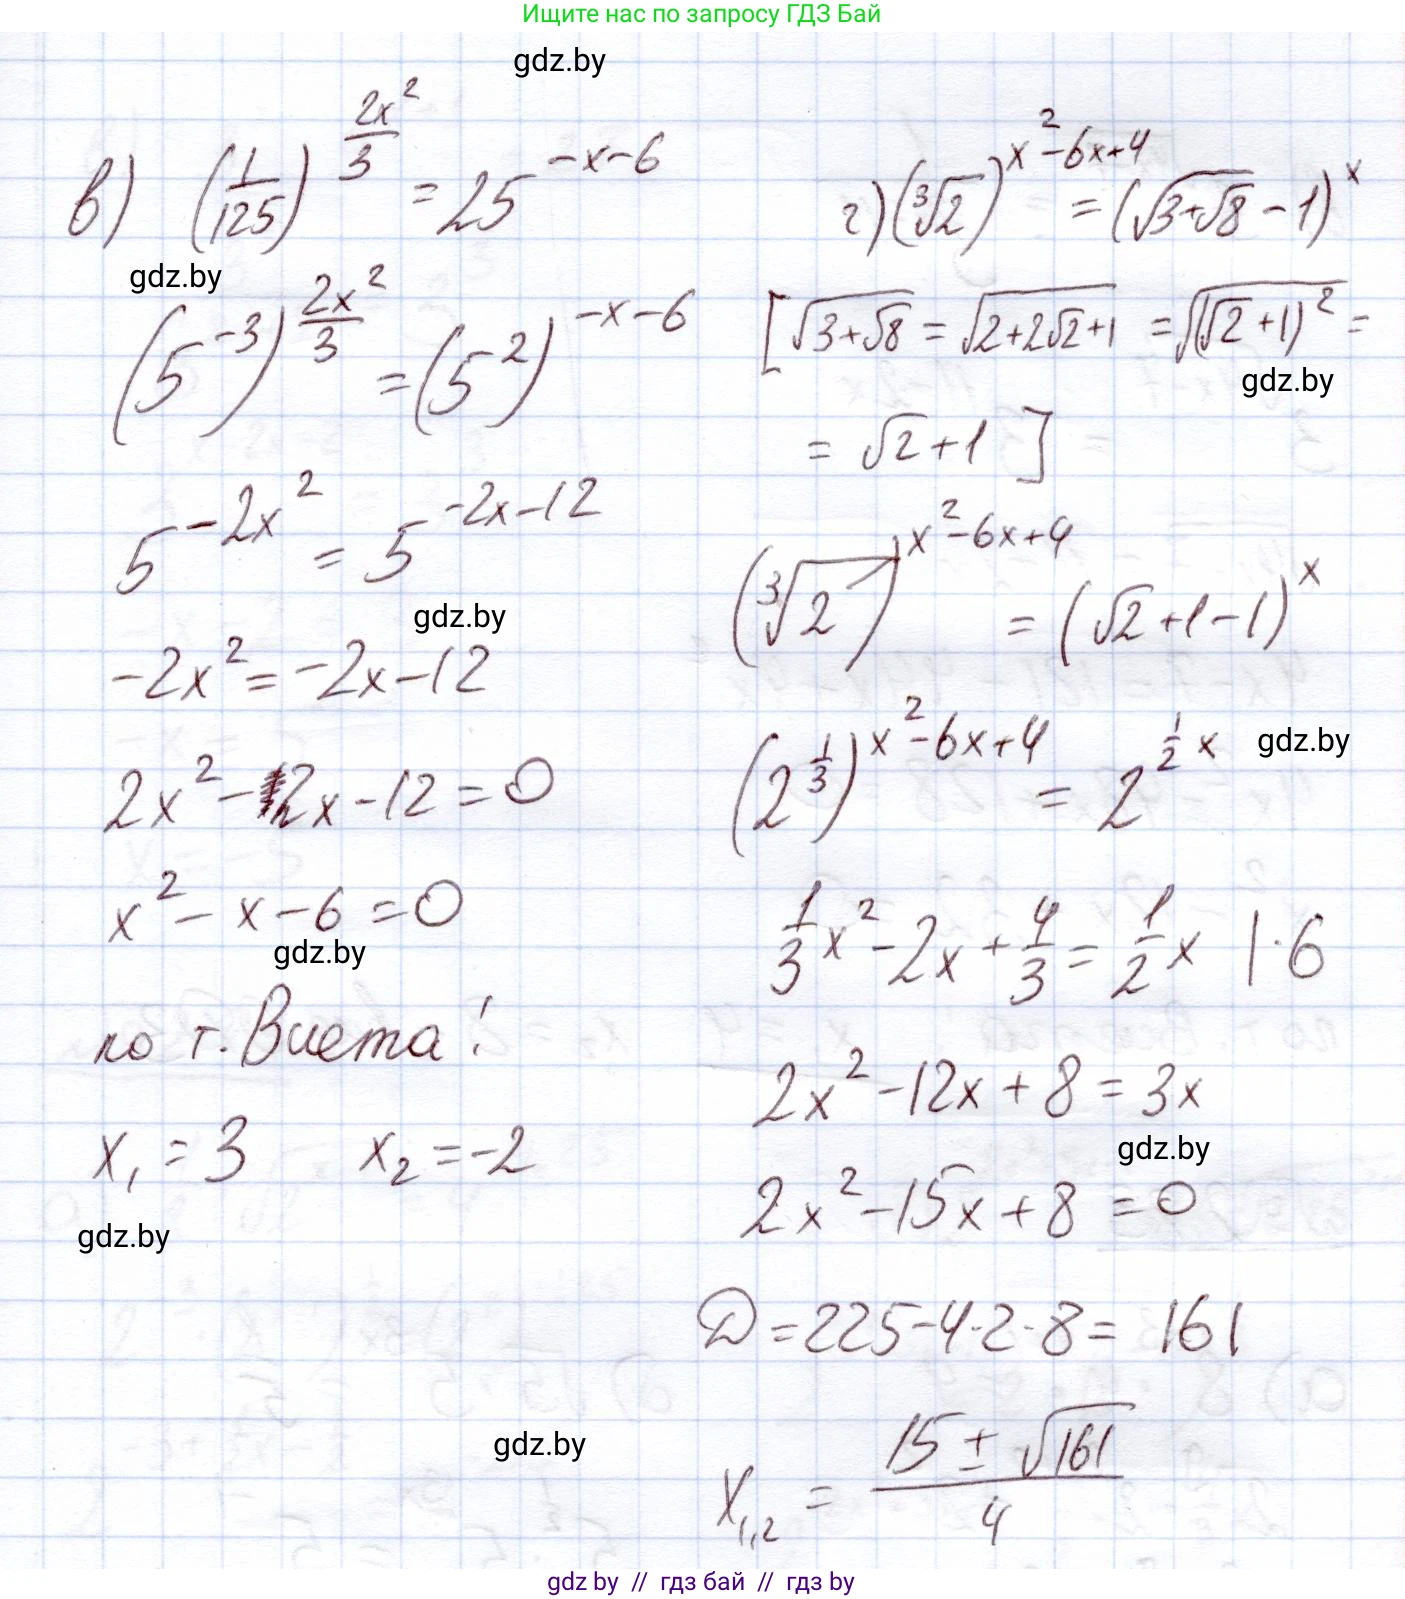 Ищите нас по запросу ГДЗ Бай
gdz.by
в) (1/125)^(2x²/3) = 25^(-x-6)
gdz.by
(5^(-3))^(2x²/3) = (5²)^(-x-6)
5^(-2x²) = 5^(-2x-12)
gdz.by
-2x² = -2x-12
2x² - 2x - 12 = 0
x² - x - 6 = 0
gdz.by
по т. Виета:
x₁ = 3 x₂ = -2
gdz.by
г) (∛2)^(x²-6x+4) = (√(3+√8) - 1)^x
[√(3+√8) = √(2+2√2+1) = √((√2+1)²) =
gdz.by
= √2+1]
(∛2)^(x²-6x+4) = (√2+1-1)^x
(2^(1/3))^(x²-6x+4) = 2^(1/2 x)
gdz.by
1/3 x² - 2x + 4/3 = 1/2 x |·6
2x² - 12x + 8 = 3x
gdz.by
2x² - 15x + 8 = 0
D = 225 - 4·2·8 = 161
gdz.by
x₁,₂ = (15 ± √161)/4
gdz by // гдз бай // гдз by